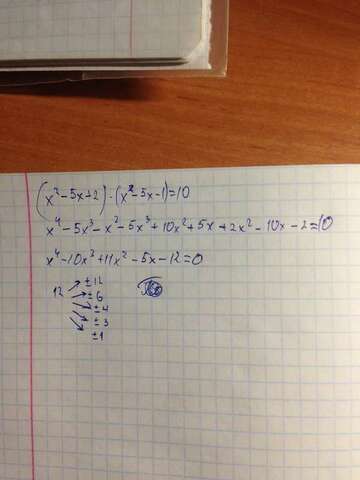 (x²-5x+2)·(x²-5x-1)=10
x⁴-5x³-x²-5x³+10x²+5x+2x²-10x-2=10
x⁴-10x³+11x²-5x-12=0
12 ±12
±6
±4
±3
±1